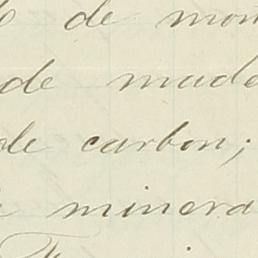 de mon
de made
de carbon;
minera